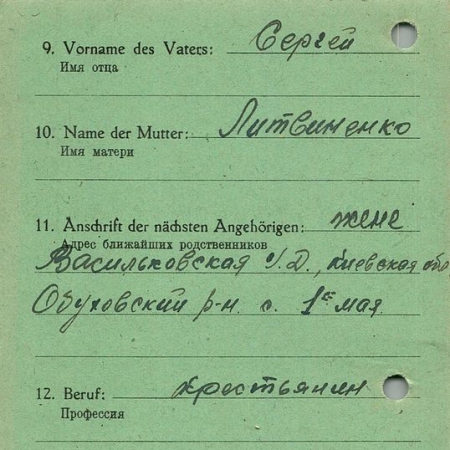 9. Vorname des Vaters: Сергей
Имя отца
10. Name der Mutter: Литвиненко
Имя матери
11. Anschrift der nächsten Angehörigen: жене
Адрес ближайших родственников
Васильковская У.Д., Киевская обл
Обуховский р-н. с. 1е мая.
12. Beruf: крестьянин
Профессия